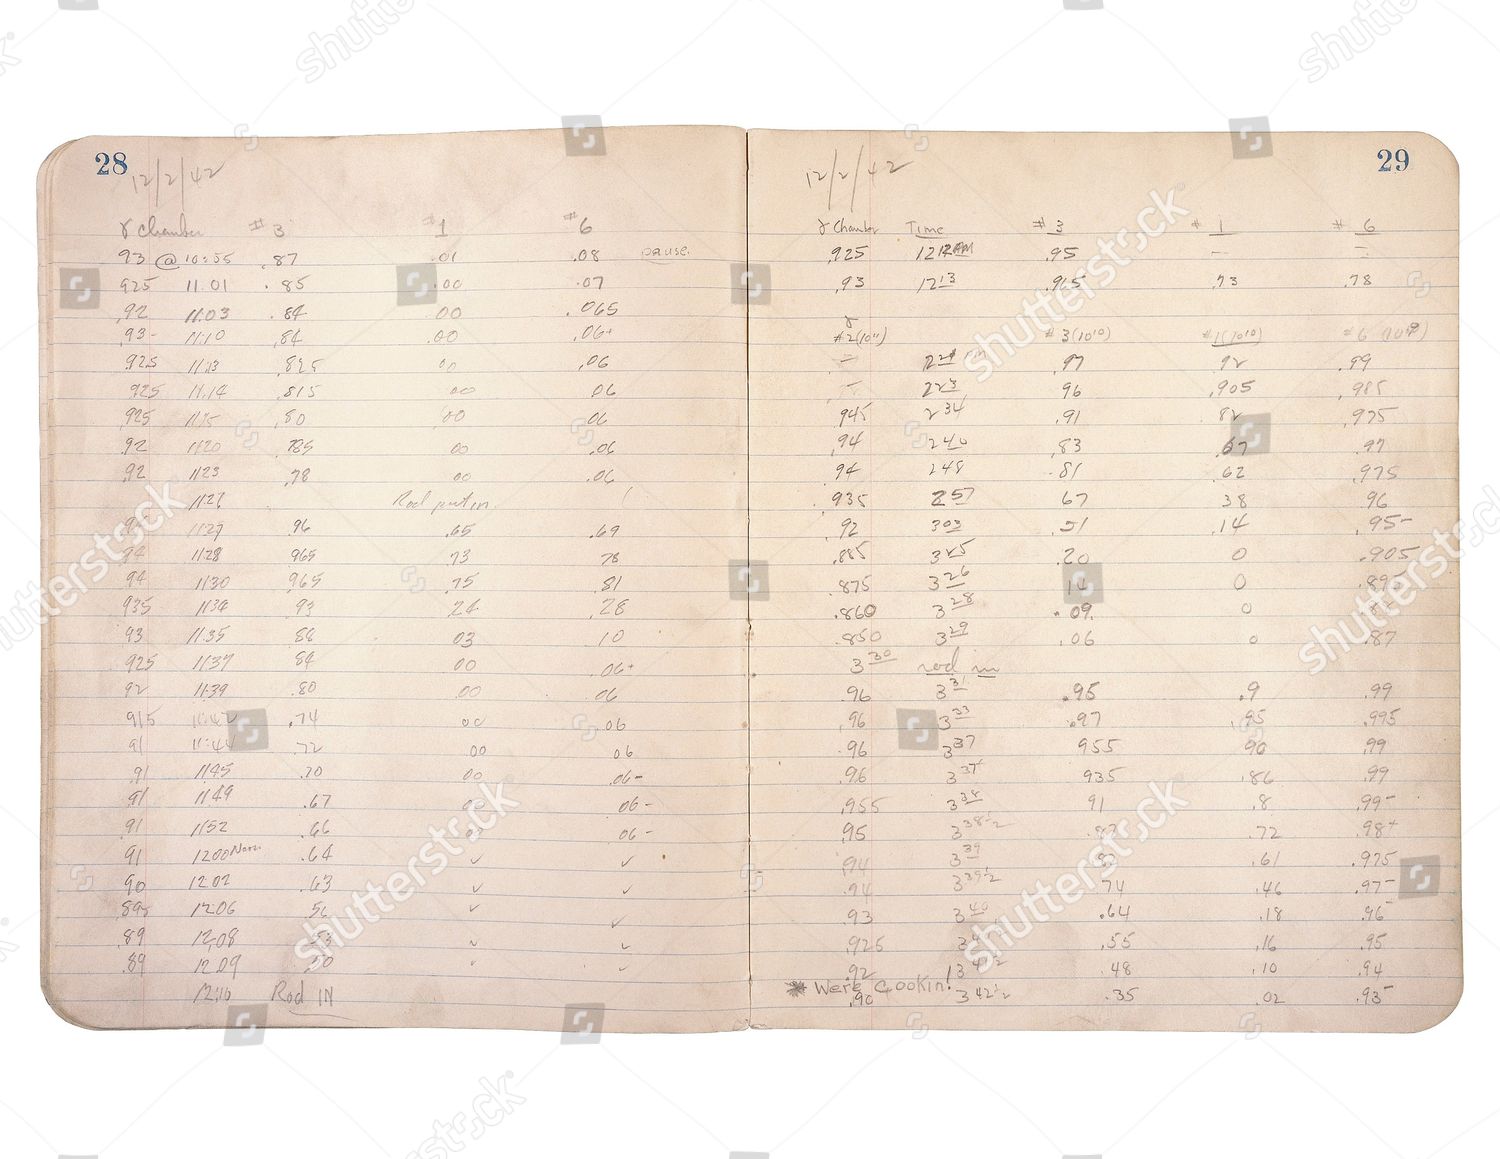 28
12/2/42
γ Chamber #3 #1 #6
93 @ 10:55 .87 .01 .08 pause.
925 11.01 .85 .00 .07
.92 11.03 .84 .00 .065
.93- 11:10 .84 .00 .06+
.925 11:13 .825 00 .06
.925 11.14 .815 00 06
.925 11:15 .80 .00 06
.92 1120 .785 00 .06
.92 1123 .78 00 .06
Rod put in.
1127 .96 .65 .69
94 1128 965 73 78
94 1130 .965 .75 .81
935 1134 93 24 .28
93 11.35 88 03 10
925 1137 84 00 .06+
92 1139 .80 .00 06
915 11:42 .74 00 .06
91 11:44 .72 .00 06
.91 1145 .70 00 .06-
.91 1149 .67 00 06-
.91 1152 .66 06-
91 1200 Noon .64 ✓ ✓
90 1202 .63 ✓ ✓
895 1206 ✓ ✓
.89 12,08 .53 ✓ ✓
.89 1209 .50 ✓ ✓
1210 Rod IN
29
12/2/42
γ Chamber Time #3 #1 #6
.925 12 12 AM .95 — —
.93 12 13 .965 .73 .78
γ
#2(10¹¹) #3(10¹⁰) #1(10¹⁰) #6
— .97 92 .99
223 96 .905 .985
.945 234 .91 82 .975
.94 240 .83 .67 .97
.94 248 .81 .62 .975
.935 257 67 38 96
.92 303 .51 .14 .95-
.885 325 .20 0 .905
.875 326 14 0 .895
.860 328 .09. 0
.850 329 .06 0 .87
330 rod in
.96 331 .95 .9 .99
.96 333 .97 .95 .995
.96 337 955 90 .99
.96 337 935 .86 .99
.955 338 91 .8 .99-
.95 338½ .87 .72 .98+
.94 339 .61 .975
.94 339½ .74 .46 .97-
.93 340 .64 .18 .96-
.925 .55 .16 .95
.92 341½ .48 .10 .94
* Were Cookin!
.90 342½ .35 .02 .93-
shutterstock